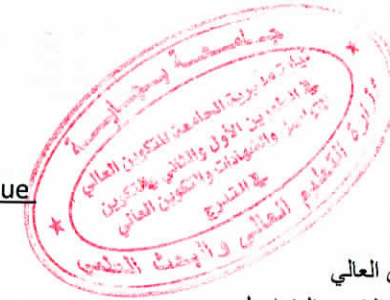 جامعة بجاية
نيابة مديرية الجامعة للتكوين العالي
في الطورين الأول والثاني والتكوين
المتواصل والشهادات والتكوين العالي
في التدرج
وزارة التعليم العالي والبحث العلمي
ue
العالي